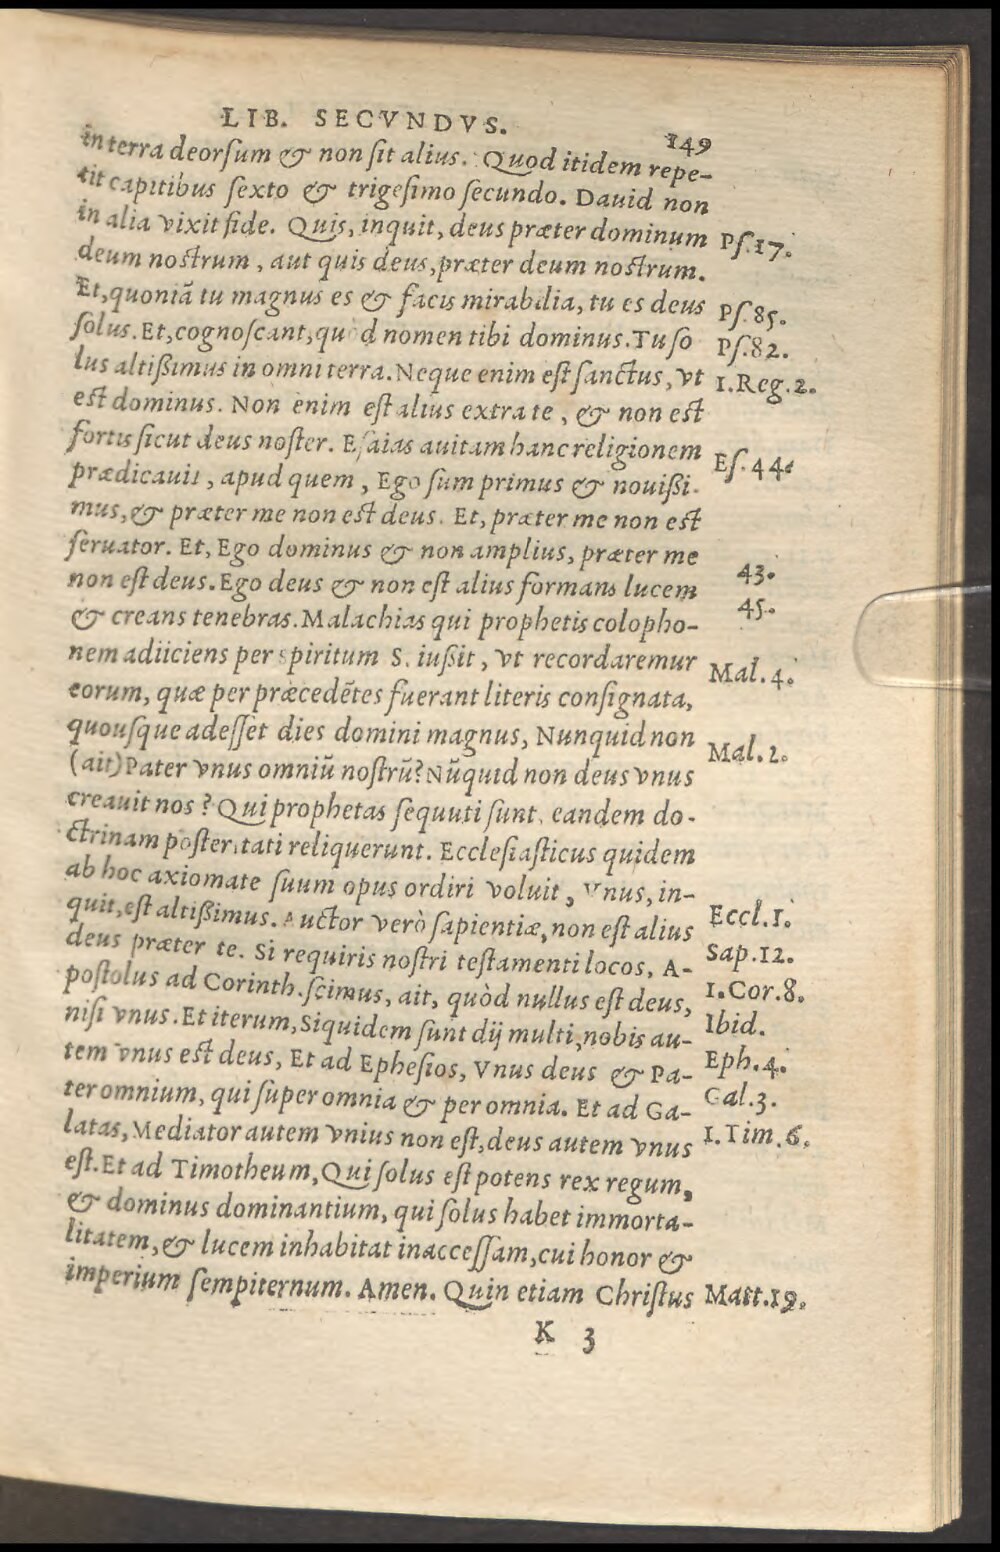 LIB. SECVNDVS.
149
in terra deorſum & non ſit alius. Quod itidem repe-
tit capitibus ſexto & trigeſimo ſecundo. Dauid non
in alia vixit fide. Quis, inquit, deus præter dominum
Pſ.17.
deum noſtrum, aut quis deus, præter deum noſtrum.
Et, quoniā tu magnus es & facis mirabilia, tu es deus
Pſ.85.
ſolus. Et, cognoſcant, quod nomen tibi dominus. Tu ſo
Pſ.82.
lus altißimus in omni terra. Neque enim eſt ſanctus, vt
1.Reg.2.
eſt dominus. Non enim eſt alius extra te, & non eſt
fortis ſicut deus noſter. Eſaias auitam hanc religionem
Eſ.44.
prædicauit, apud quem, Ego ſum primus & nouißi-
mus, & præter me non eſt deus. Et, præter me non eſt
ſeruator. Et, Ego dominus & non amplius, præter me
43.
non eſt deus. Ego deus & non eſt alius formans lucem
45.
& creans tenebras. Malachias qui prophetis colopho-
nem adiiciens per spiritum S. iußit, vt recordaremur
Mal.4.
eorum, quæ per præcedētes fuerant literis conſignata,
quouſque adeſſet dies domini magnus, Nunquid non
Mal.2.
(ait) Pater vnus omniū noſtrū? Nūquid non deus vnus
creauit nos? Qui prophetas ſequuti ſunt, eandem do-
ctrinam poſteritati reliquerunt. Eccleſiaſticus quidem
ab hoc axiomate ſuum opus ordiri voluit, Vnus, in-
quit, eſt altißimus. Auctor verò ſapientiæ, non eſt alius
Eccl.1.
deus præter te. Si requiris noſtri teſtamenti locos, A-
Sap.12.
poſtolus ad Corinth. ſcimus, ait, quòd nullus eſt deus,
1.Cor.8.
niſi vnus. Et iterum, Siquidem ſunt dij multi, nobis au-
Ibid.
tem vnus eſt deus, Et ad Epheſios, Vnus deus & Pa-
Eph.4.
ter omnium, qui ſuper omnia & per omnia. Et ad Ga-
Gal.3.
latas, Mediator autem vnius non eſt, deus autem vnus
1.Tim.6.
eſt. Et ad Timotheum, Qui ſolus eſt potens rex regum,
& dominus dominantium, qui ſolus habet immorta-
litatem, & lucem inhabitat inacceſſam, cui honor &
imperium ſempiternum. Amen. Quin etiam Chriſtus
Matt.19.
K 3